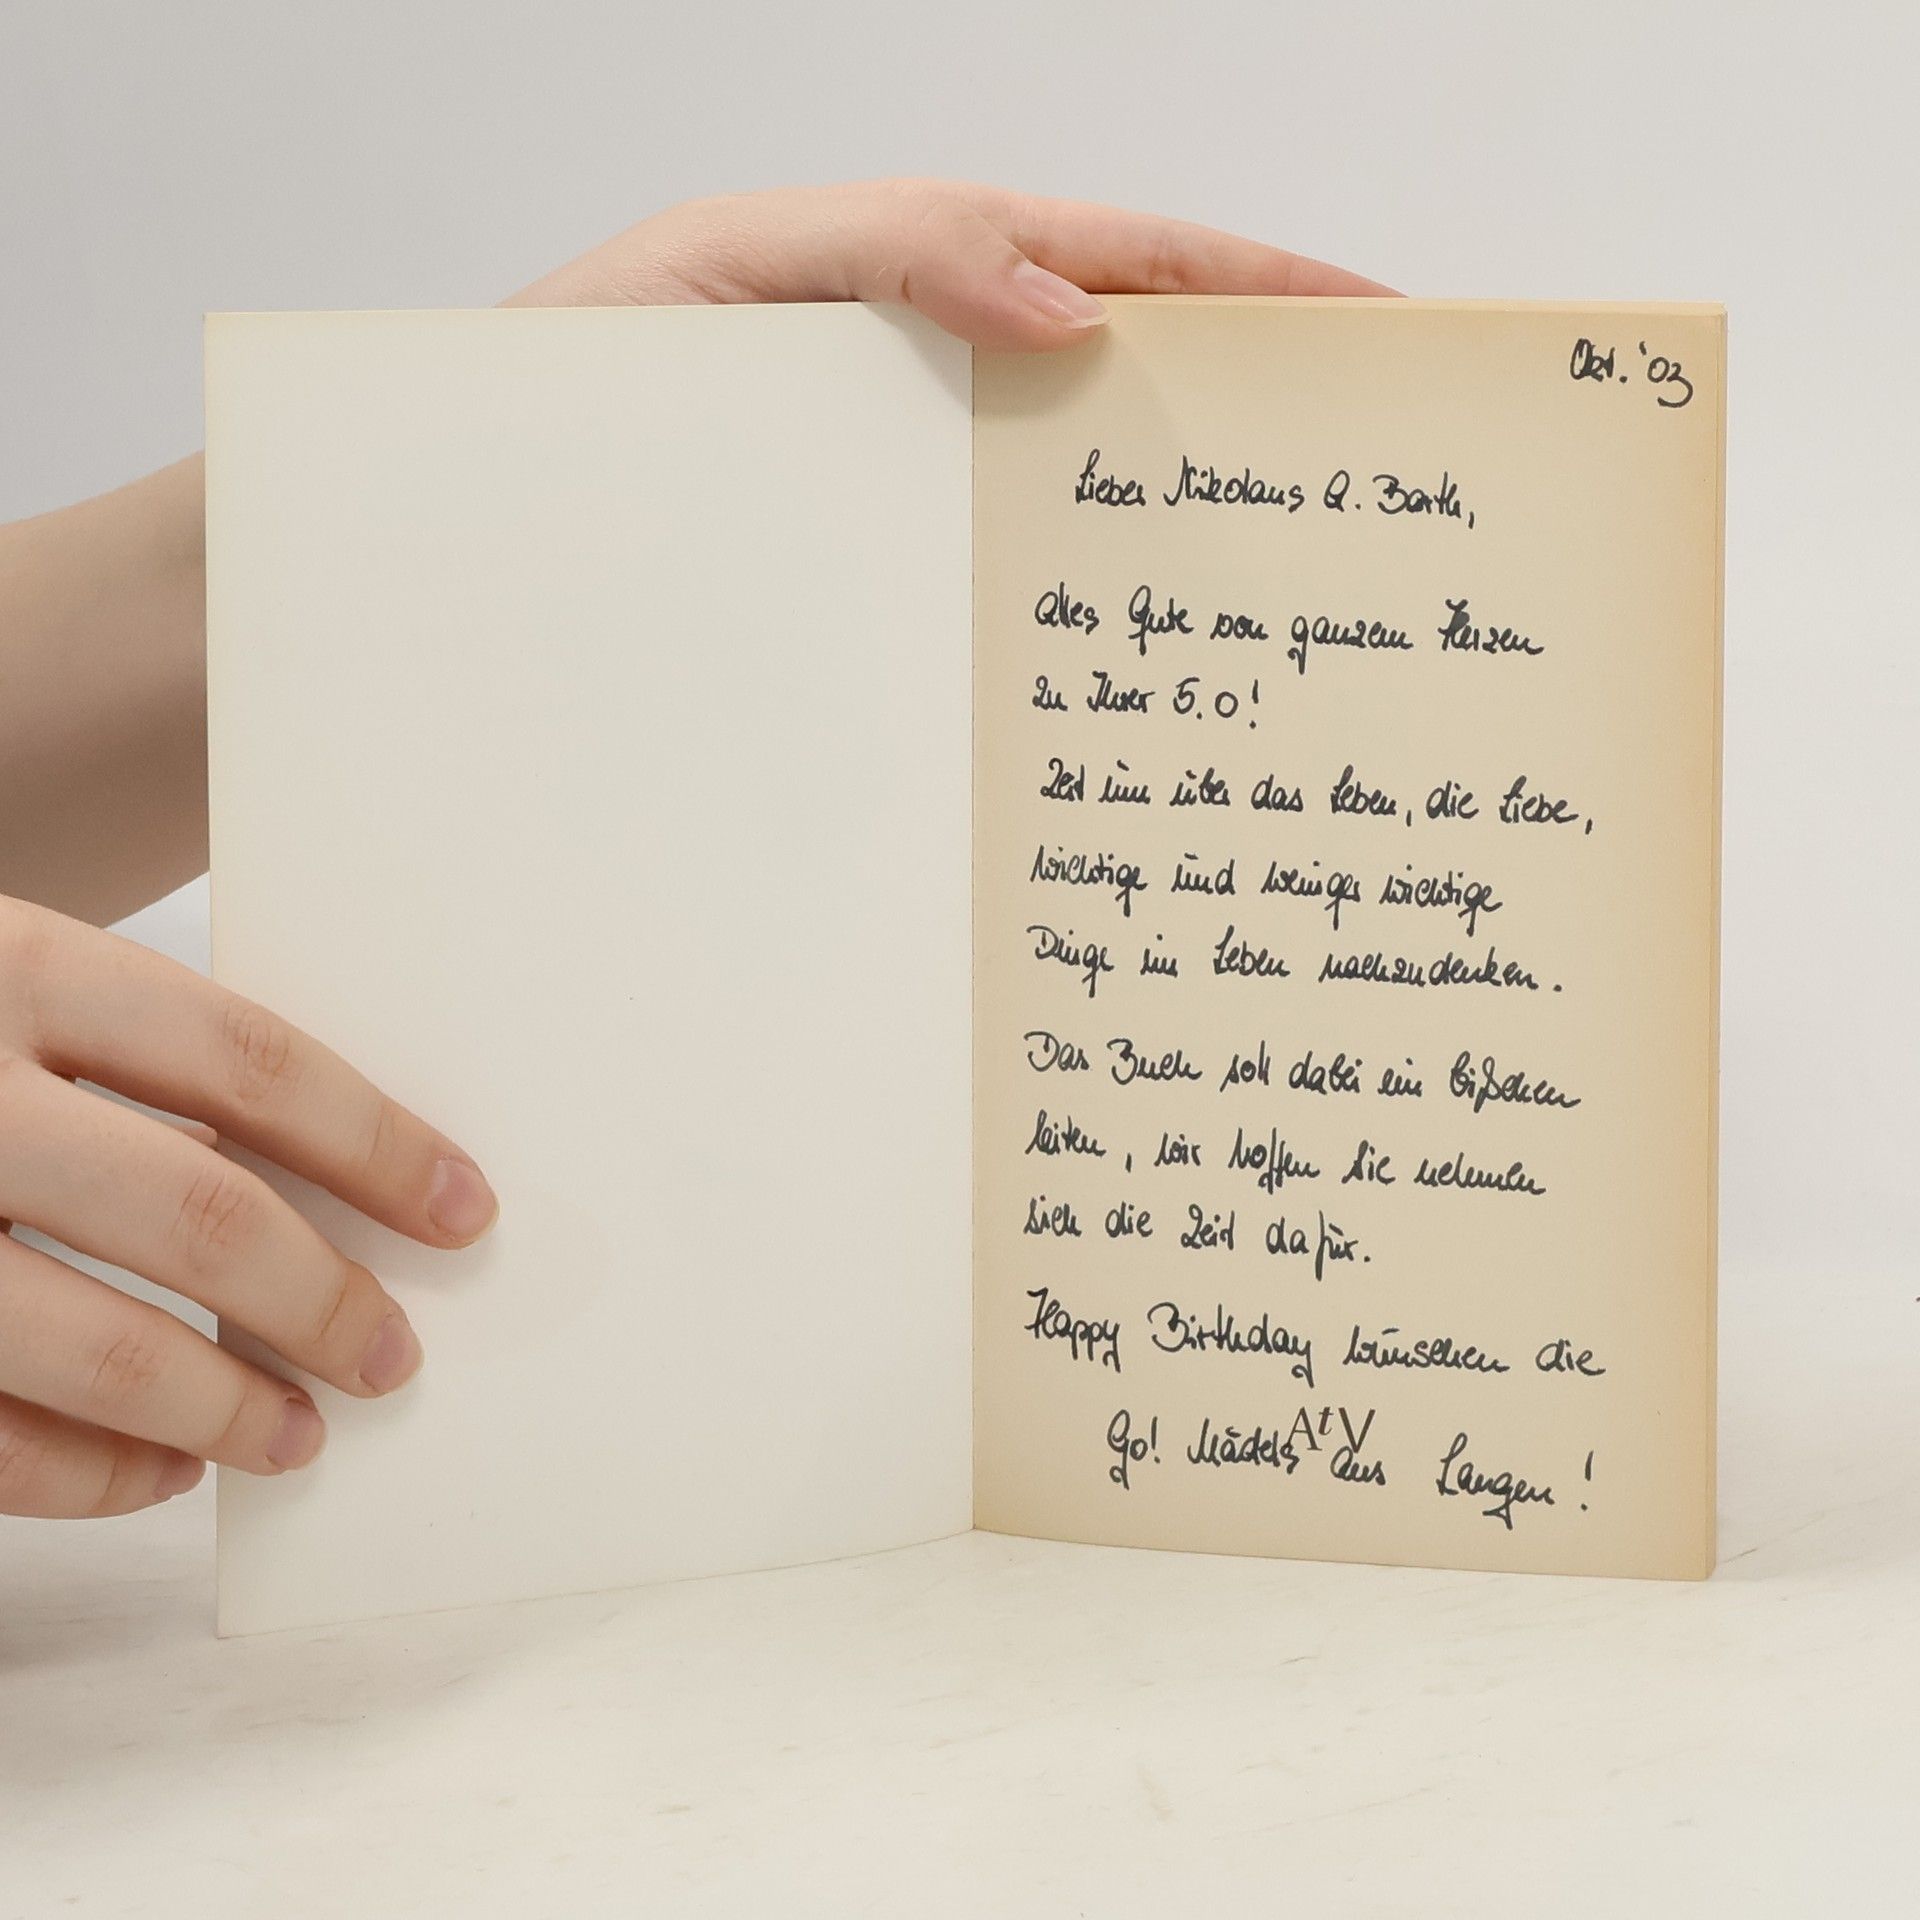 Okt. '03
Lieber Nikolaus Q. Barth,
alles Gute von ganzem Herzen
zu Ihrer 5.0!
Zeit um über das Leben, die Liebe,
wichtige und weniger wichtige
Dinge im Leben nachzudenken.
Das Buch soll dabei ein bißchen
leiten, wir hoffen Sie nehmen
sich die Zeit dafür.
Happy Birthday wünschen die
AtV
Go! Mädels aus Langen!